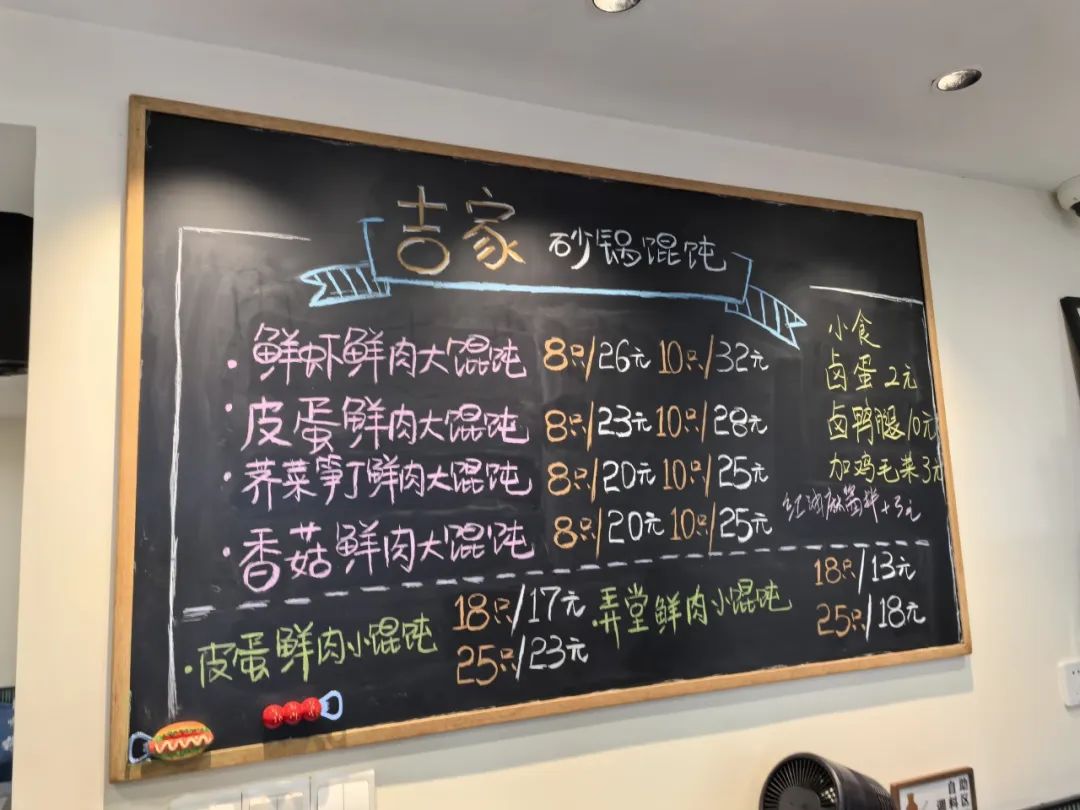 吉家 砂锅馄饨
·鲜虾鲜肉大馄饨 8只/26元 10只/32元
·皮蛋鲜肉大馄饨 8只/23元 10只/28元
·荠菜笋丁鲜肉大馄饨 8只/20元 10只/25元
·香菇鲜肉大馄饨 8只/20元 10只/25元
小食
卤蛋 2元
卤鸭腿 10元
加鸡毛菜 3元
红油麻酱拌+3元
·皮蛋鲜肉小馄饨 18只/17元
25只/23元
·弄堂鲜肉小馄饨 18只/13元
25只/18元
自助
调料区